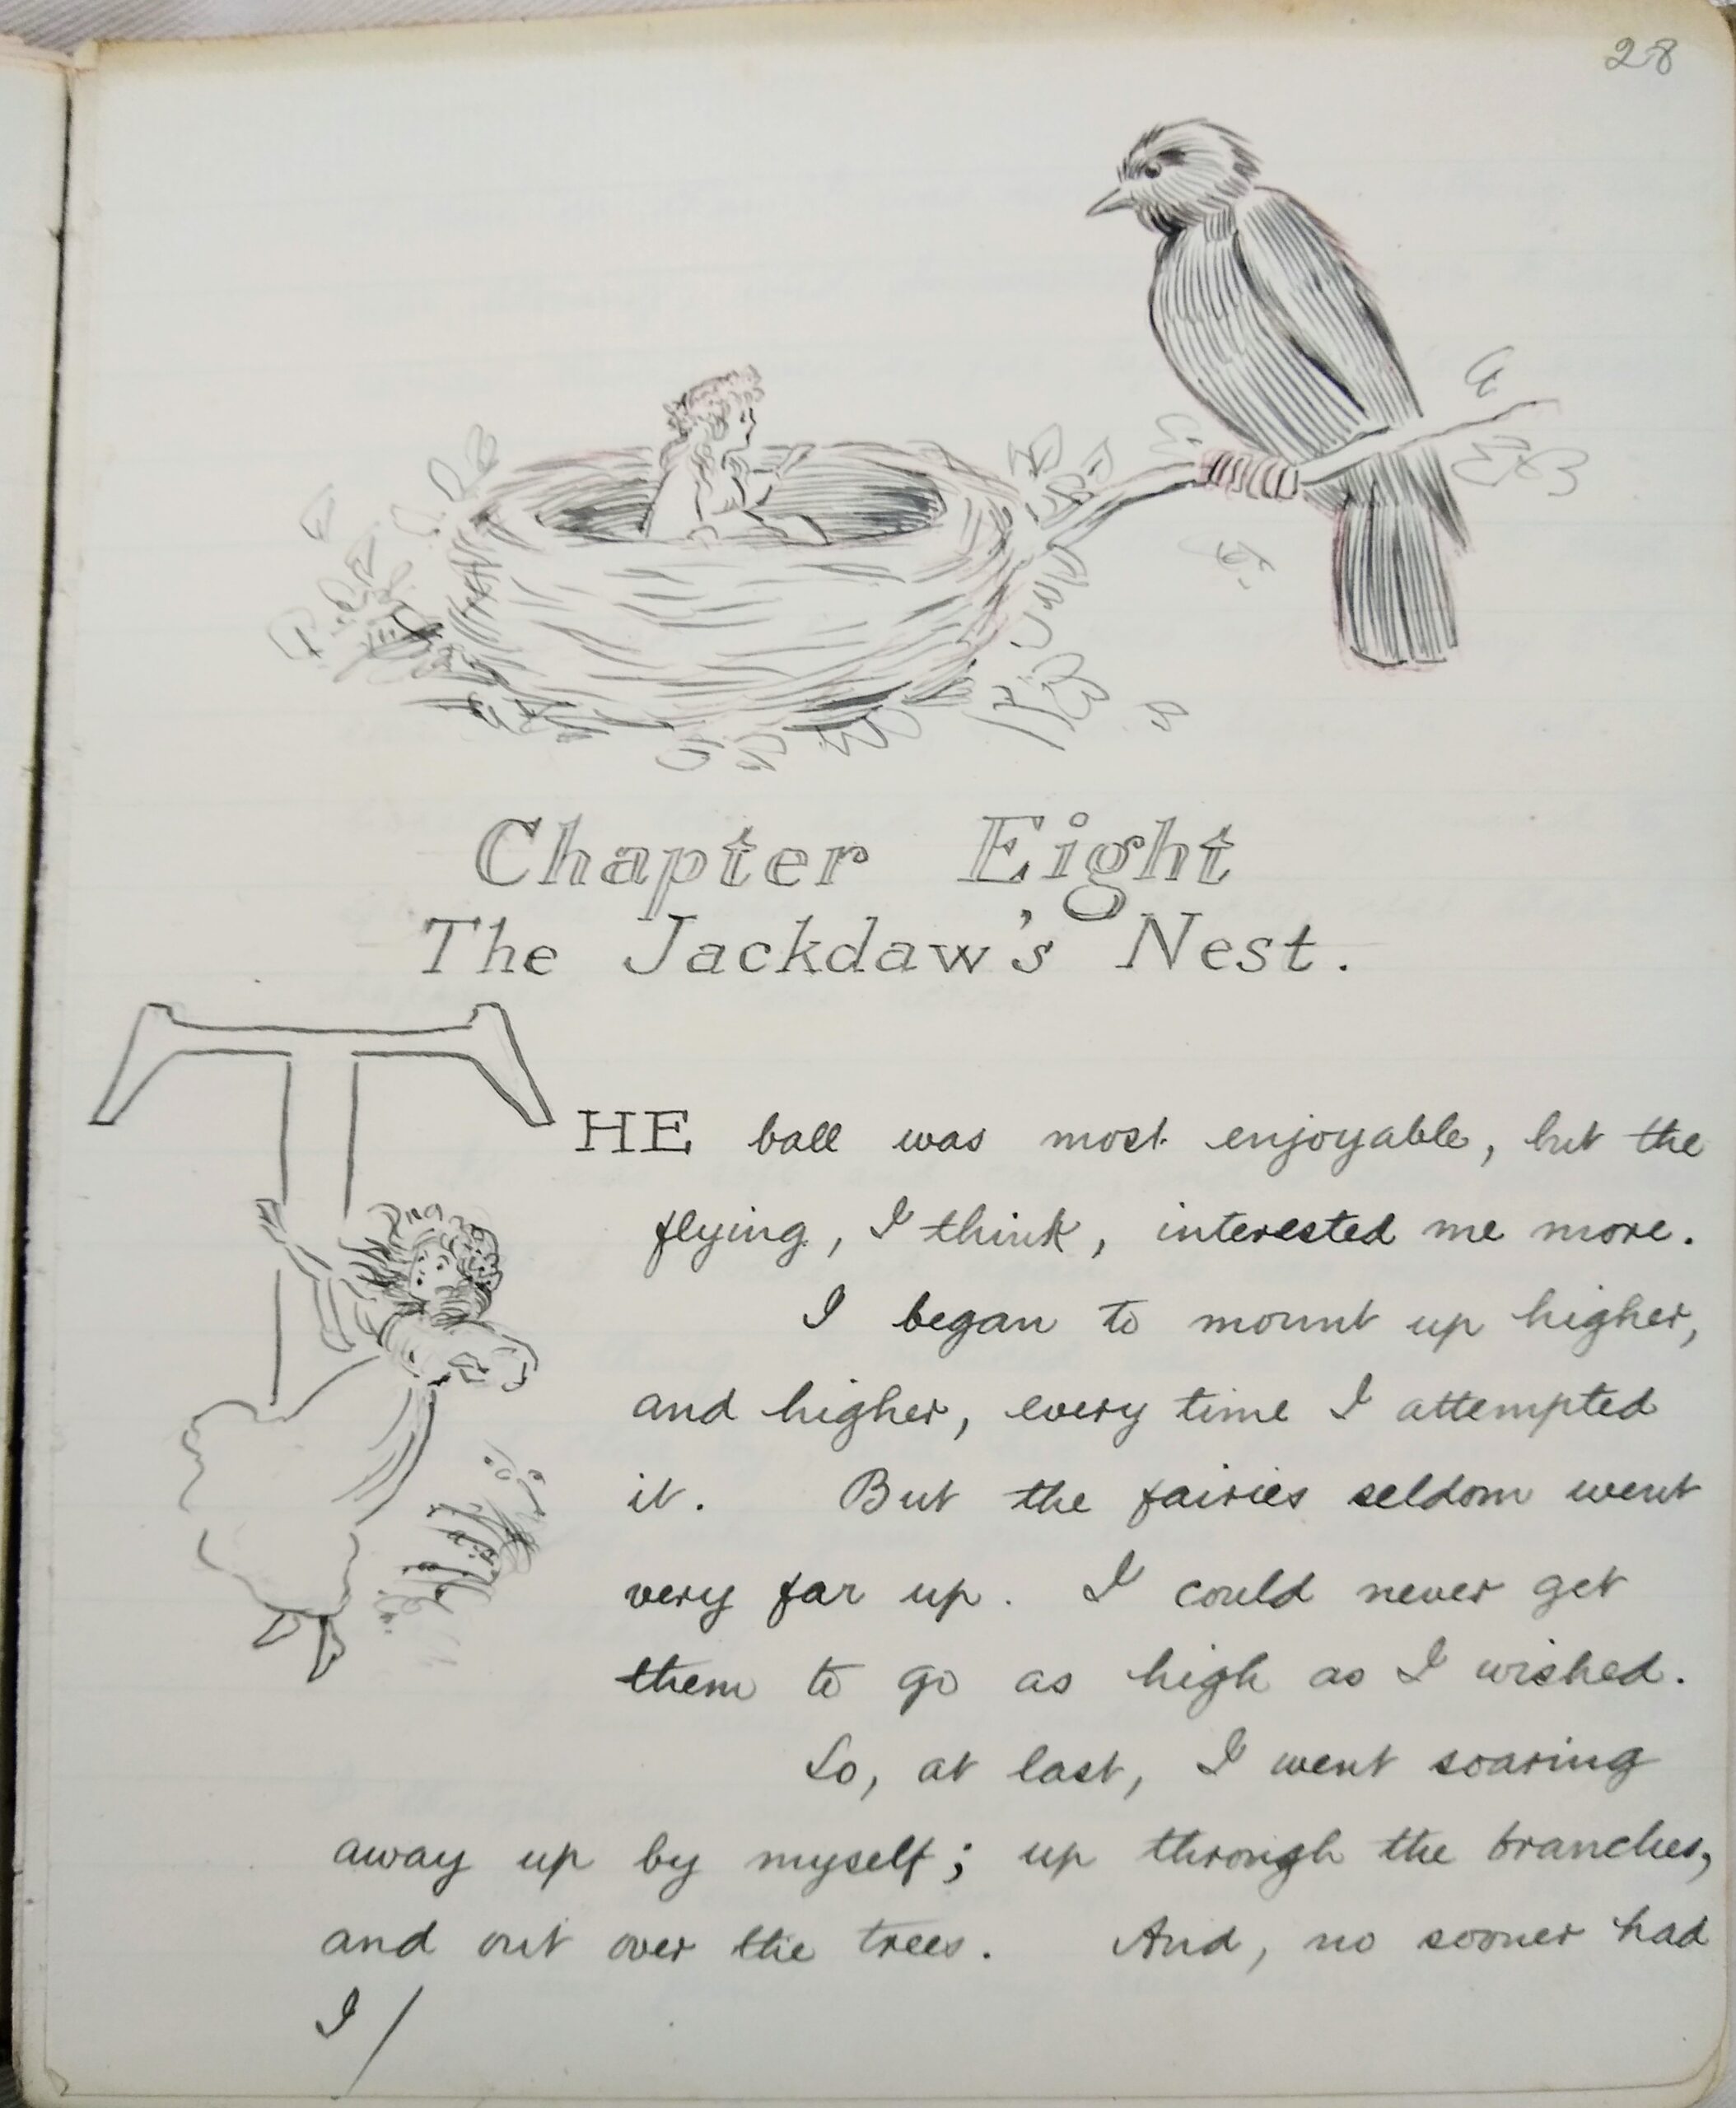 28
Chapter Eight
The Jackdaw's Nest.
THE ball was most enjoyable, but the
flying, I think, interested me more.
I began to mount up higher,
and higher, every time I attempted
it. But the fairies seldom went
very far up. I could never get
them to go as high as I wished.
So, at last, I went soaring
away up by myself; up through the branches,
and out over the trees. And, no sooner had
I /